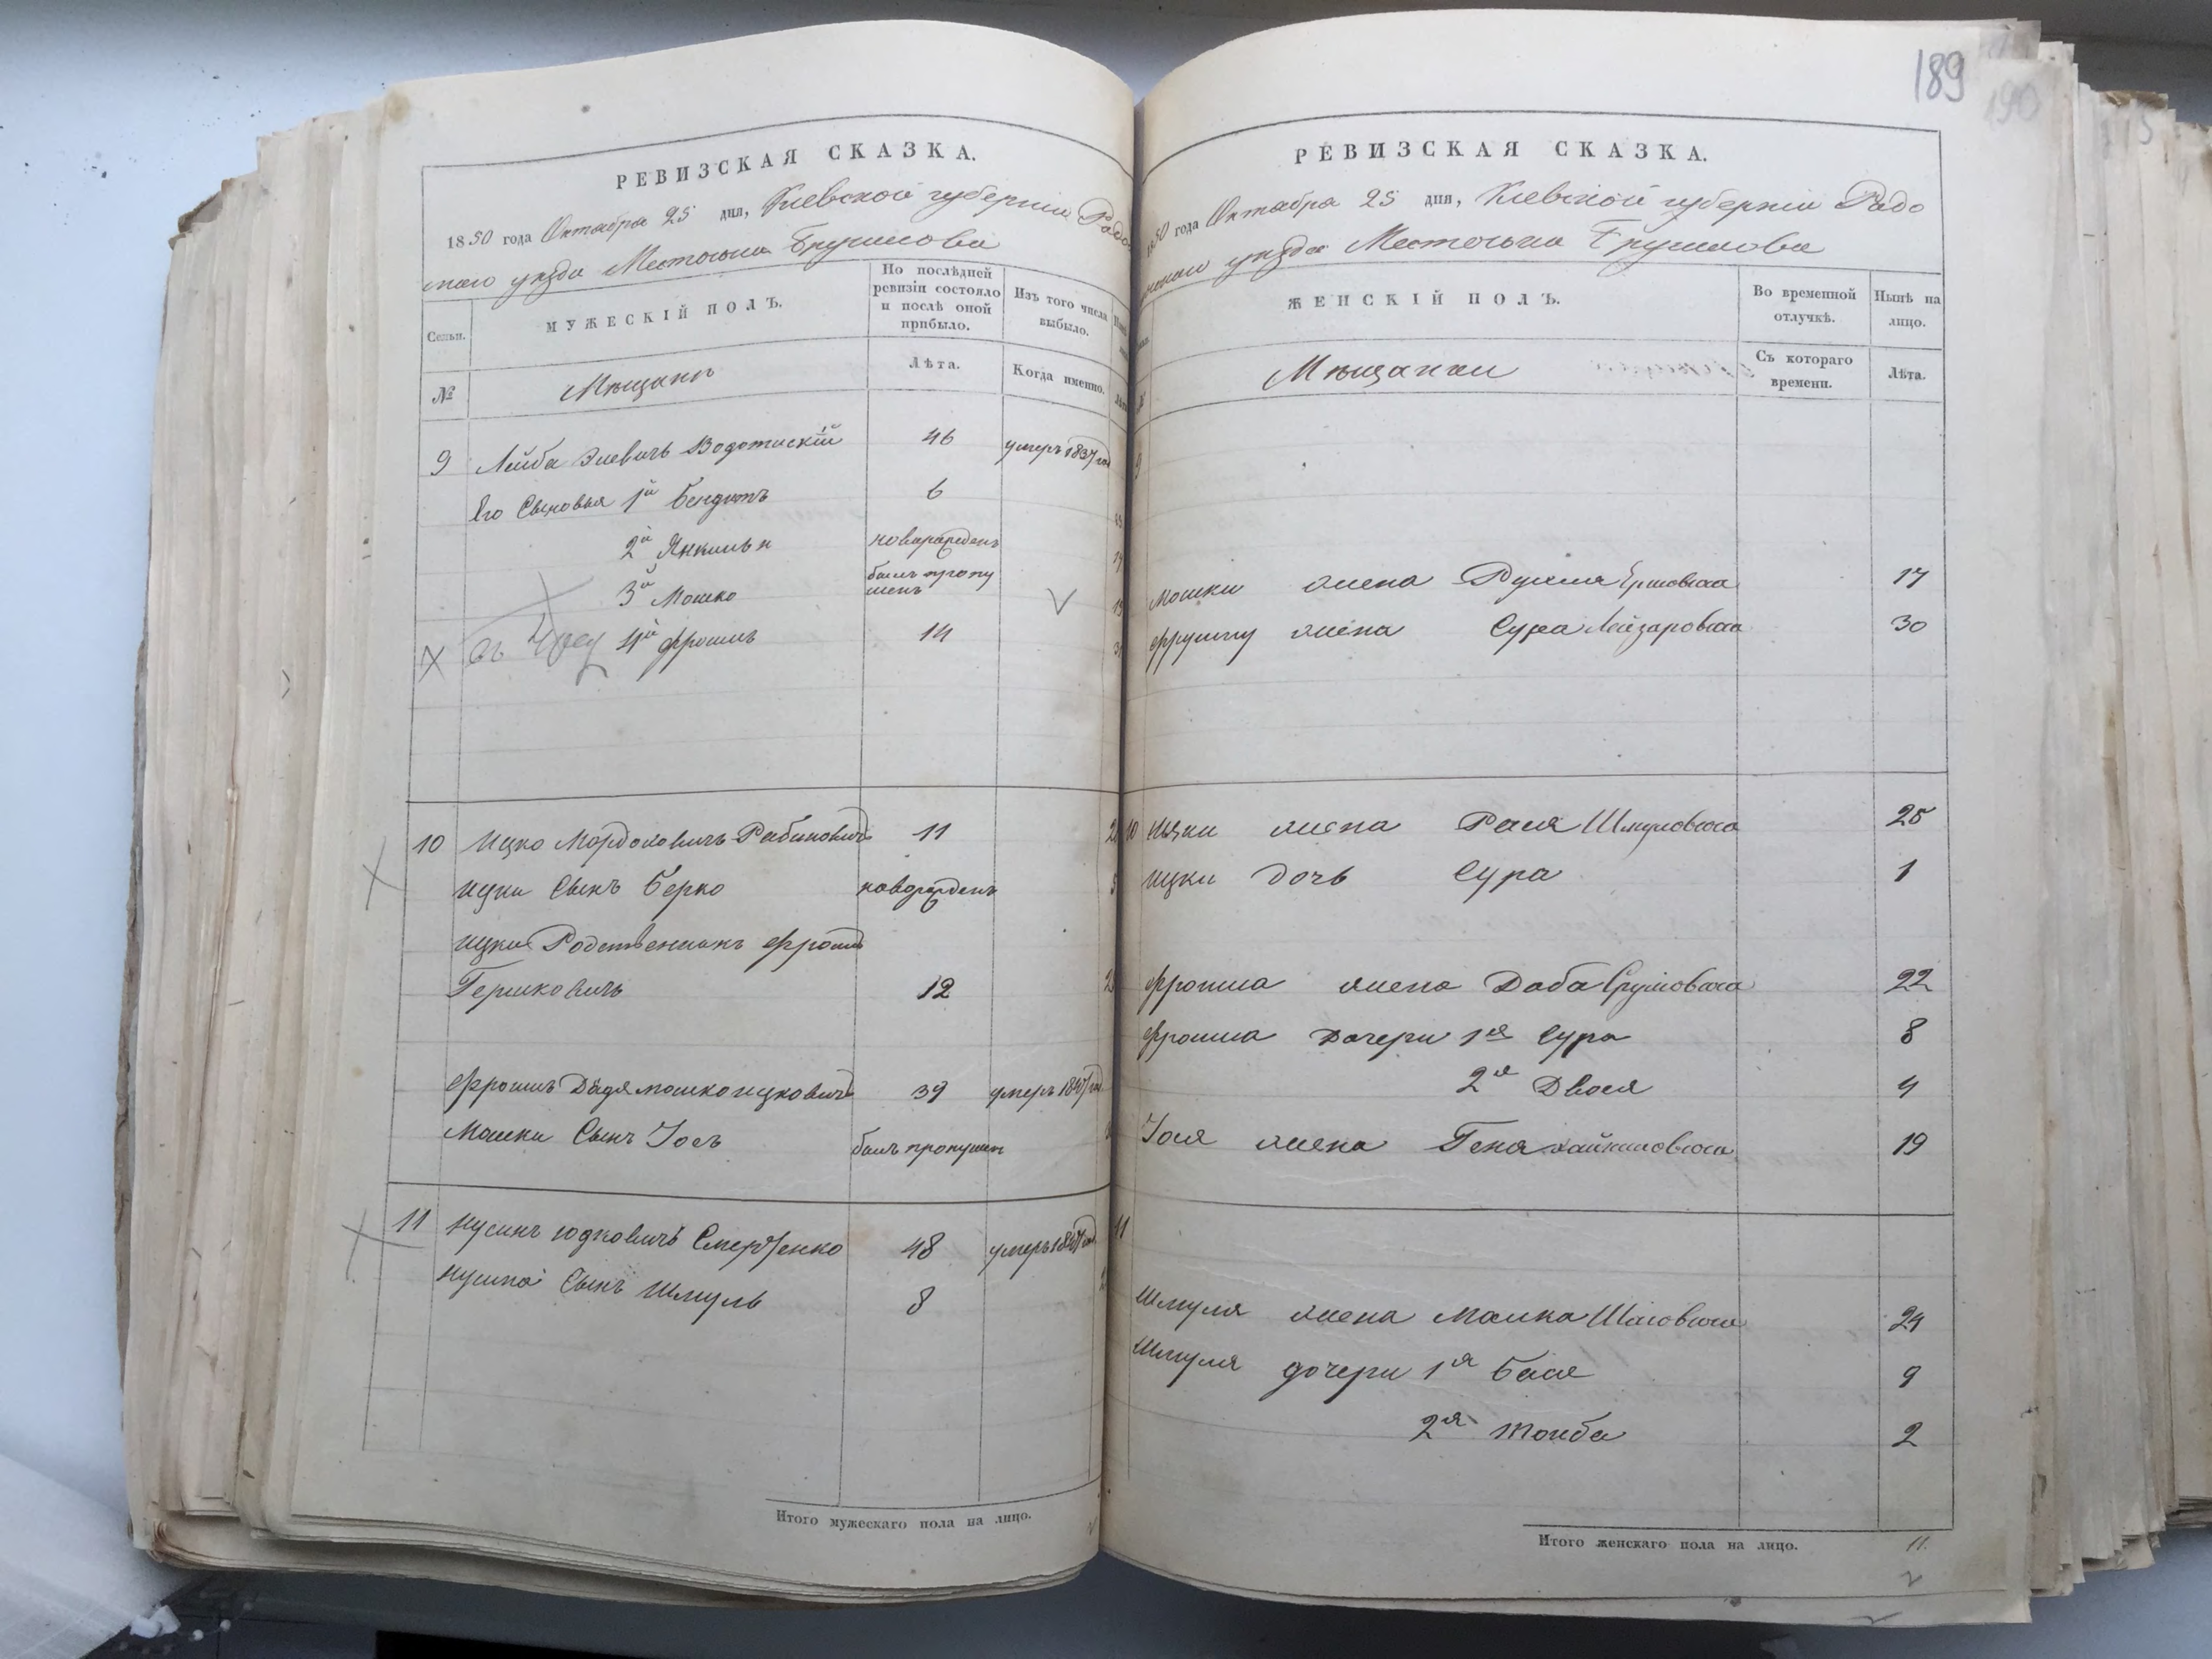 РЕВИЗСКАЯ СКАЗКА.
1850 года Октября 25 дня, Киевской губерніи Радо
мысл уѣзда Местечка Брусилова
Семьи.
МУЖЕСКІЙ ПОЛЪ.
По послѣдней ревизіи состояло и послѣ оной прибыло.
Изъ того числа выбыло.
№
Мѣщанъ
Лѣта.
Когда именно.
9 Лейба Элевичъ Водотискій 46 умеръ 1837 год
Его Сыновья 1й Бендитъ 6
2й Янкиль новорожденъ
3й Мошко былъ пропу
щенъ
4й Фроимъ 14
10 Ицко Мордоховичъ Рабиновичъ 11
Ицки Сынъ Берко новорожденъ
Ицки Родственникъ Фроимъ
Гершковичъ 12
Фроимъ Дядя Мошко Ицковичъ 39 умеръ 1847 год
Мошки Сынъ Іосъ былъ пропущен
11 Нусинъ Юдковичъ 48 умеръ 1847 год
Нусина Сынъ Шмуль 8
Итого мужескаго пола на лицо.
189
190
РЕВИЗСКАЯ СКАЗКА.
1850 года Октября 25 дня, Киевской губерніи Радо
уѣзда Местечка Брусилова
ЖЕНСКІЙ ПОЛЪ.
Во временной отлучкѣ.
Нынѣ на лицо.
Мѣщанки
Съ котораго времени.
Лѣта.
9
Мошки жена Рухля 17
Фруиму жена Сура Лейзаровна 30
10 Ицки жена Рася Шмуловна 25
Ицки дочь Сура 1
Фроима жена Доба Сруловна 22
Фроима Дочери 1я Сура 8
2я Двося 4
Іося жена Геня Хаймовна 19
11
Шмуля жена Малка 24
Шмуля дочери 1я Бася 9
2я Тойба 2
Итого женскаго пола на лицо. 11